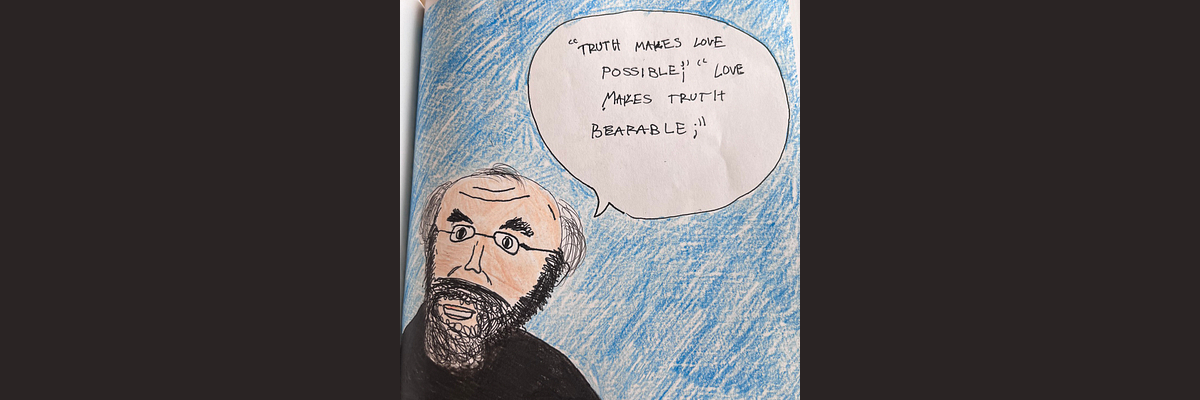 “TRUTH MAKES LOVE
POSSIBLE;” “LOVE
MAKES TRUTH
BEARABLE;”